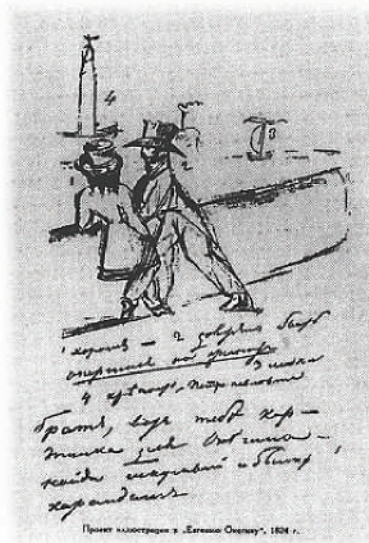 4
3
1
1 хорошъ — 2 долженъ быть
опершися на гранитъ
3 лодка
4 крѣпость, Петропавловская
Братъ, вотъ тебѣ кар—
тинка для Онѣгина —
найди искусный и быстрый
карандашъ
Проект иллюстрации к „Евгению Онегину“, 1824 г.